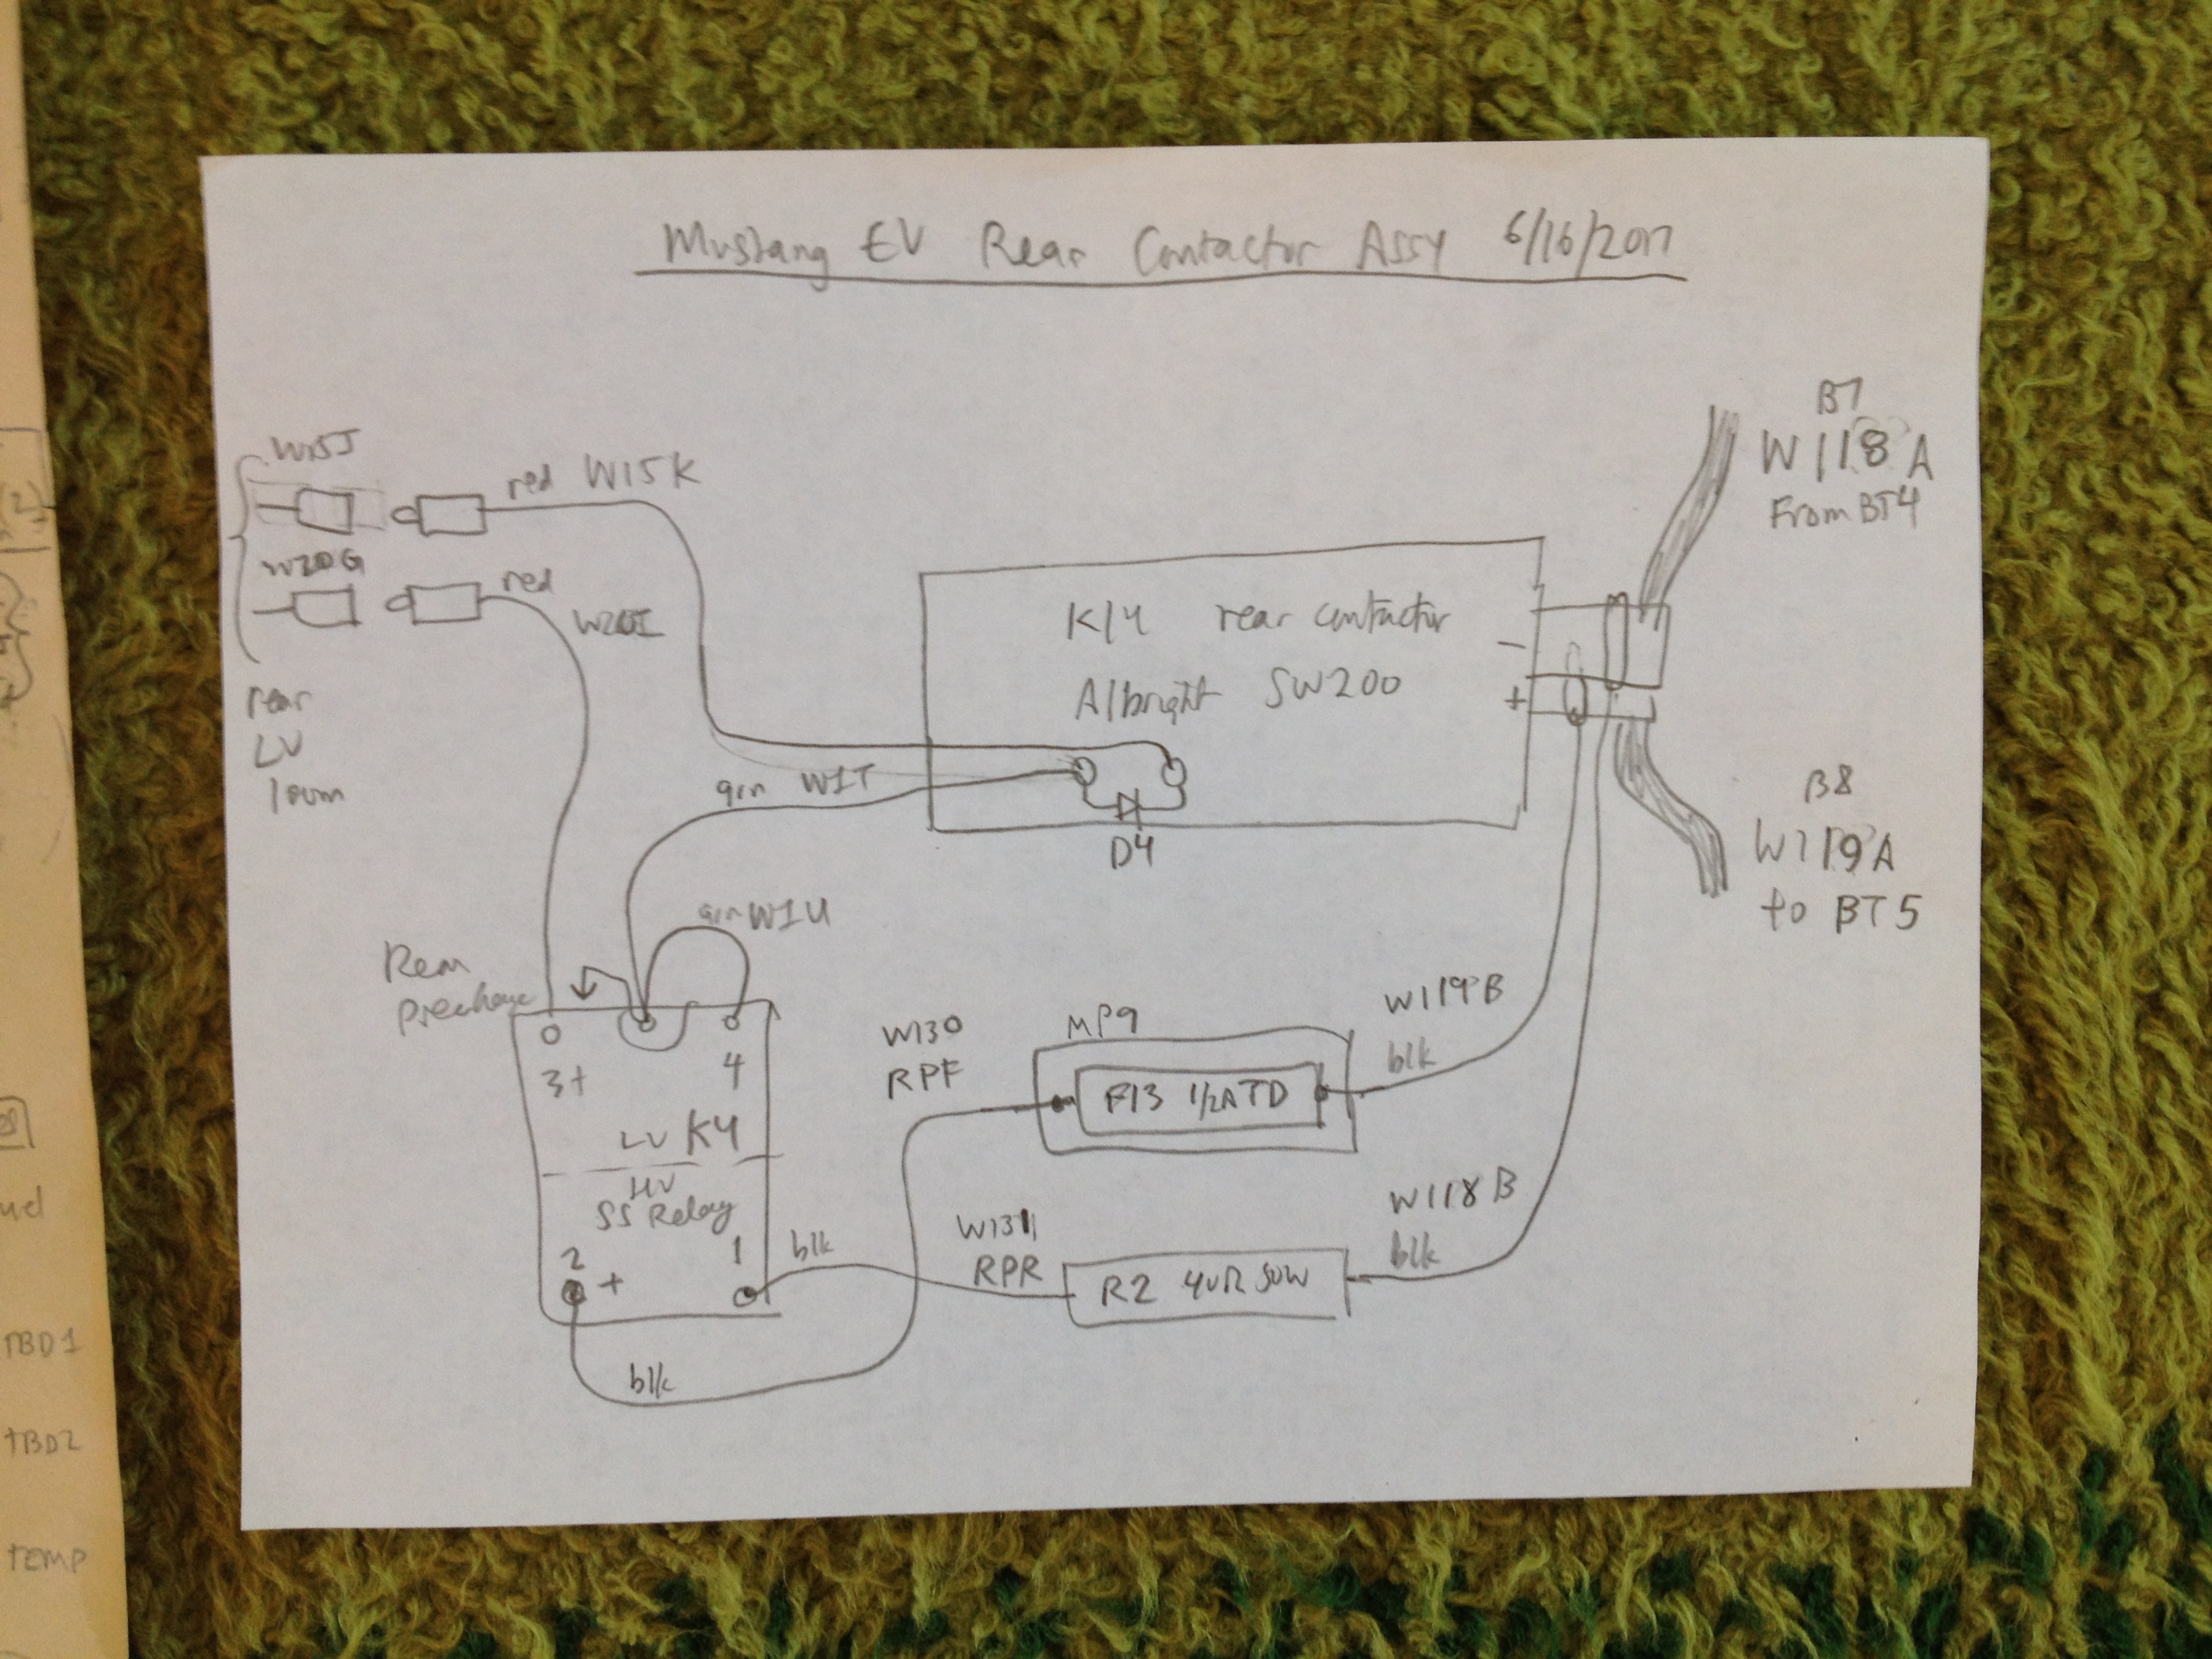 Mustang EV Rear Contactor Assy 6/16/2017
B7
W118A
From BT4
W15J
red W15K
W20G
red
W20I
rear
LV
loom
K14 rear contactor
Albright SW200
-
+
grn W1T
D4
B8
W119A
to BT5
grn W1U
Rear
Precharge
3+
4
LV K4
HV
SS Relay
2
+
1
blk
blk
W130
RPF
MP9
F13 1/2A TD
W119B
blk
W131
RPR
R2 50W
W118B
blk
TBD1
TBD2
TEMP